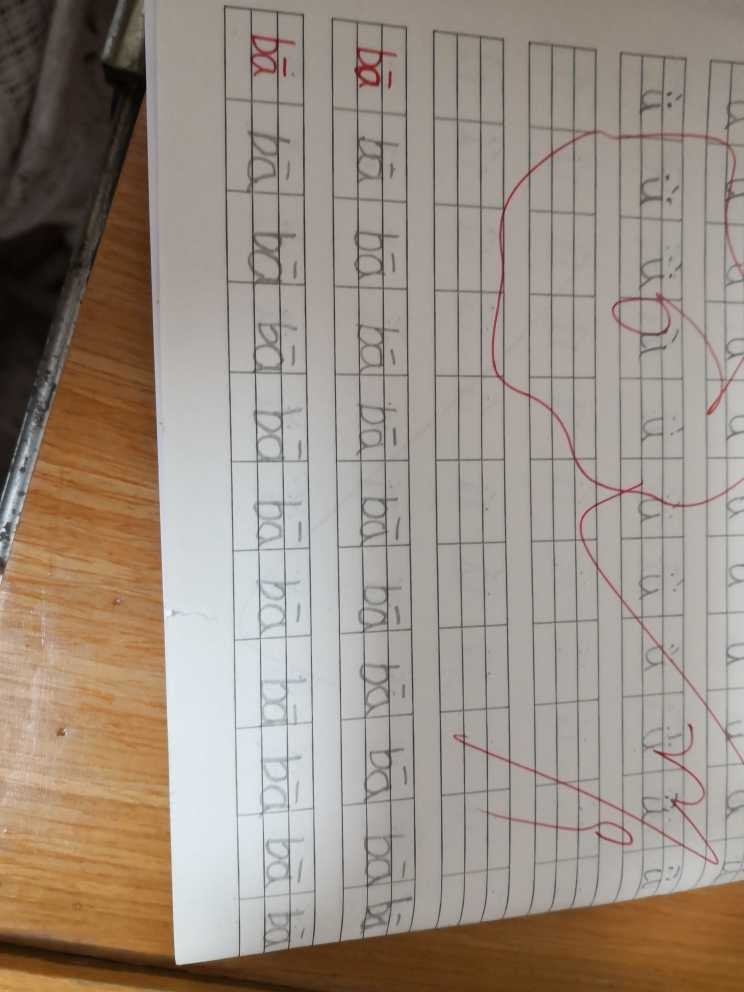 ü ü ü ü ü ü ü ü ü ü ü
bā bā bā bā bā bā bā bā bā bā bā
bā bā bā bā bā bā bā bā bā bā bā